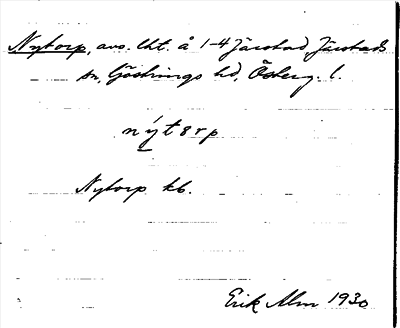 Nytorp, avs. lht. å 1-4 Järstad, Järstads
sn, Göstrings hd, Österg. l.
nýt8rp
Nytorp kb.
Erik Alm 1930